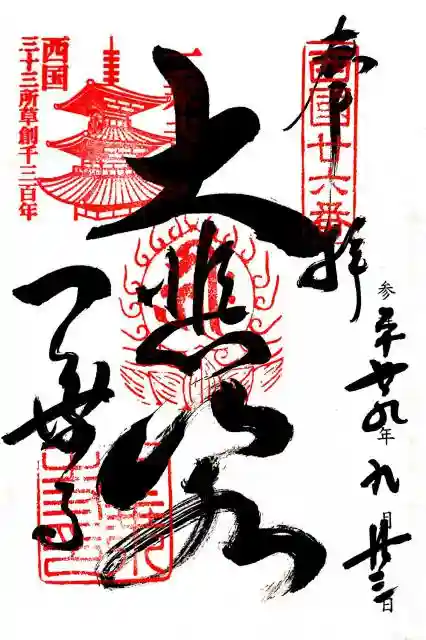 奉拝
西國廿六番
参平廿九年九月廿三日
大悲閣
一乗寺
西国
三十三所草創千三百年